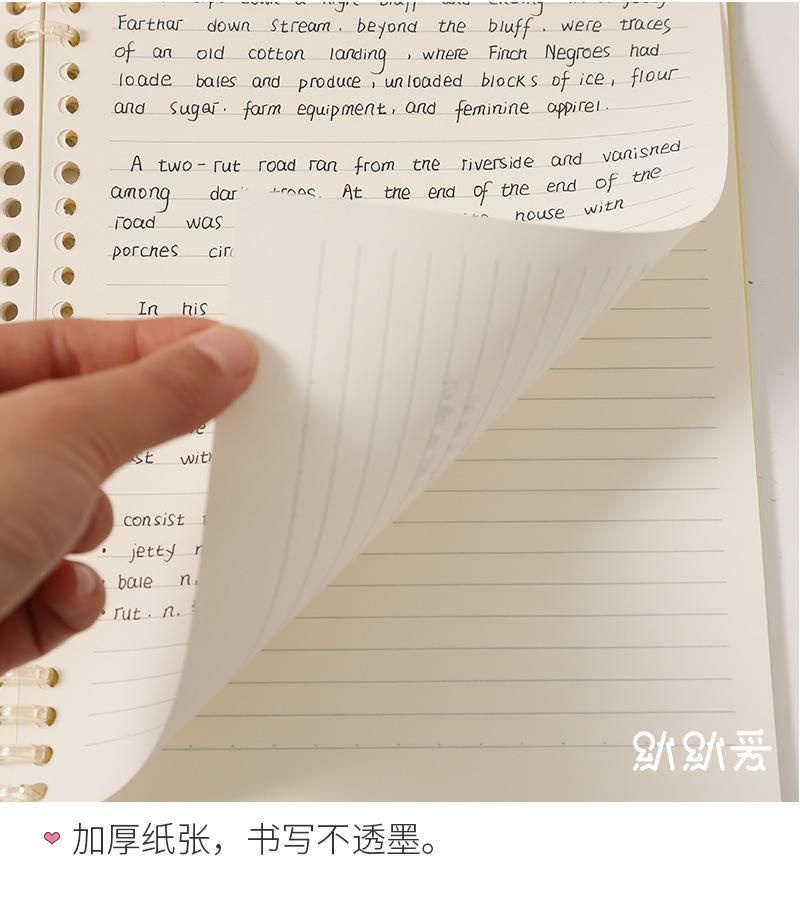 Farthar down stream. beyond the bluff. were traces
of an old cotton landing , where Finch Negroes had
loade bales and produce , unloaded blocks of ice, flour
and sugar. farm equipment, and feminine appirel.
A two-rut road ran from the riverside and vanished
among trees. At the end of the end of the
road was house with
porches
In his
consist
• jetty
• bale n.
• rut. n.
就就爱
加厚纸张，书写不透墨。